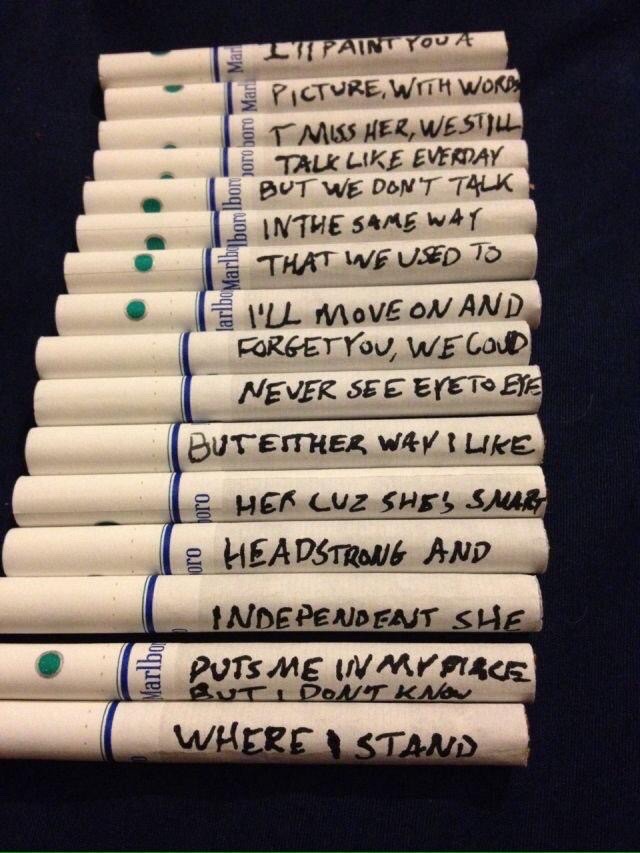 Mar I'll PAINT YOU A
Marl PICTURE, WITH WORDS
boro I MISS HER, WE STILL
oro TALK LIKE EVERDAY
lboro BUT WE DON'T TALK
lboro IN THE SAME WAY
Marlb THAT WE USED TO
arlbo I'LL MOVE ON AND
FORGET YOU, WE COUD
NEVER SEE EYE TO EYE
BUT EITHER WAY I LIKE
oro HER CUZ SHE'S SMART
oro HEADSTRONG AND
INDEPENDENT SHE
Marlbo PUTS ME IN MY PLACE
BUT I DON'T KNOW
WHERE I STAND